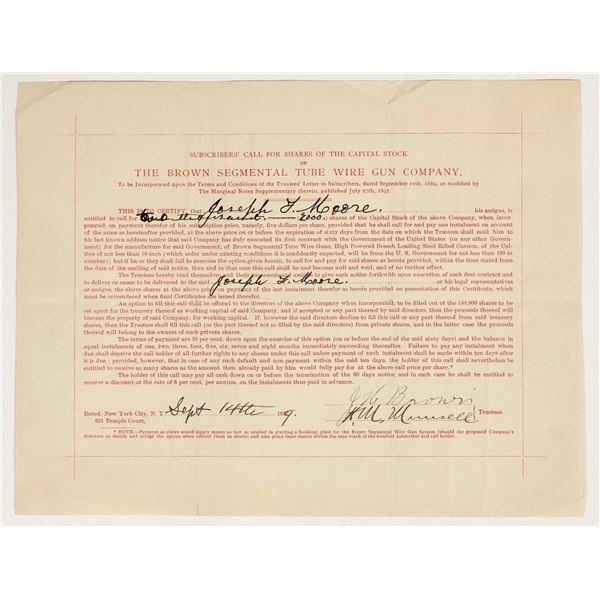 SUBSCRIBERS' CALL FOR SHARES OF THE CAPITAL STOCK
OF
THE BROWN SEGMENTAL TUBE WIRE GUN COMPANY,
To be Incorporated upon the Terms and Conditions of the Trustees' Letter to Subscribers, dated September 11th, 1889, as modified by
The Marginal Notes Supplementary thereto, published July 27th, 1897.
THIS IS TO CERTIFY, that Joseph F. Moore. his assigns, is
entitled to call for Two thousand 2000. shares of the Capital Stock of the above Company, when incor-
porated, on payment therefor of his subscription price, namely, five dollars per share, provided that he shall call for and pay one instalment on account
of the same as hereinafter provided, at the above price on or before the expiration of sixty days from the date on which the Trustees shall mail him to
his last known address notice that said Company has duly executed its first contract with the Government of the United States (or any other Govern-
ment) for the manufacture for said Government, of Brown Segmental Tube Wire Guns, High Powered Breech Loading Steel Rifled Cannon, of the Cal-
ibre of not less than 10-inch (which order under existing conditions it is confidently expected, will be from the U. S. Government for not less than 100 in
number); but if he or they shall fail to exercise the option given herein, to call for and pay for said shares as herein provided, within the time stated from
the date of the mailing of said notice, then and in that case this call shall be and become null and void, and of no further effect.
The Trustees hereby bind themselves and their successors and assigns to give such notice promptly upon the execution of such first contract and
to deliver or cause to be delivered to the said Joseph F. Moore. or his legal representatives
or assigns, the above shares at the above price on payment of the last instalment therefor as herein provided on presentation of this Certificate, which
must be surrendered when final Certificates are issued therefor.
An option to fill this call shall be offered to the directors of the above Company when incorporated, to be filled out of the 150,000 shares to be
set apart for the treasury thereof as working capital of said Company, and if accepted or any part thereof by said directors, then the proceeds thereof will
become the property of said Company, for working capital. If, however the said directors decline to fill this call or any part thereof from said treasury
shares, then the Trustees shall fill this call (or the part thereof not so filled by the said directors) from private shares, and in the latter case the proceeds
thereof will belong to the owners of such private shares.
The terms of payment are 20 per cent. down upon the exercise of this option (on or before the end of the said sixty days) and the balance in
equal instalments of one, two, three, four, five, six, seven and eight months immediately succeeding thereafter. Failure to pay any instalment when
due shall deprive the call holder of all further rights to any shares under this call unless payment of such instalment shall be made within ten days after
it is due; provided, however, that in case of any such default and non-payment within said ten days, the holder of this call shall nevertheless be
entitled to receive as many shares as the amount then already paid by him would fully pay for at the above call price per share.*
The holder of this call may pay all cash down on or before the termination of the 60 days notice, and in such case he shall be entitled to
receive a discount at the rate of 6 per cent. per annum, on the instalments thus paid in advance.
J. H. Brown
Dated, New York City, N. Y. Sept 14th 1889. Trustees.
631 Temple Court,
* NOTE.—Payment as above would supply money as fast as needed in erecting a finishing plant for the Brown Segmental Wire Gun System (should the proposed Company's
directors so decide and accept the option when offered them as above) and also place these shares within the easy reach of the smallest subscriber and call holder.